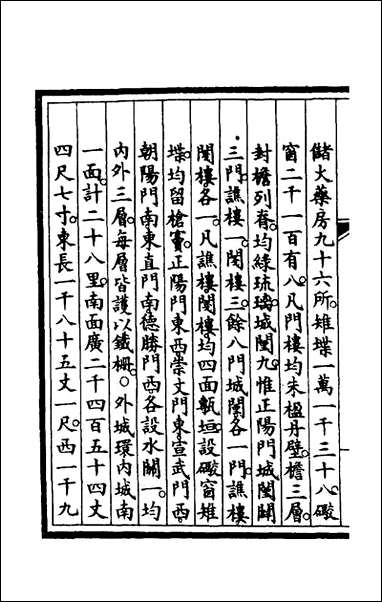 儲火藥房九十六所。雉堞一萬一千三十八。礮
窗二千一百有八。凡門樓均朱楹丹壁。檐三層。
封檐列脊。均綠琉璃。城闉九。惟正陽門城闉闢
三門。譙樓一。閱樓三。餘八門城闉各一門。譙樓
閱樓各一。凡譙樓閱樓。均四面甎垣。設礮窗。雉
堞均留槍竇。正陽門東西。崇文門東。宣武門西。
朝陽門南。東直門南。德勝門西。各設水關一。均
內外三層。每層皆護以鐵柵。○外城環內城南
一面。計二十八里。南面廣二千四百五十四丈
四尺七寸。東長一千八十五丈一尺。西一千九